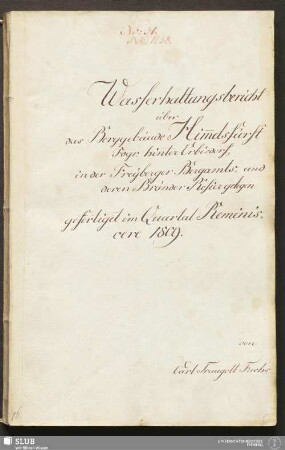 Wasserhaltungsbericht
über
das Berggebäude Himelsfürst
Fdgr. hinter Erbisdorf,
in der Freyberger Bergamts- und
deren Brander Refier gelegen
gefertiget im Quartal Reminis-
cere 1809.
von
Carl Traugott Fuchs
SLUB